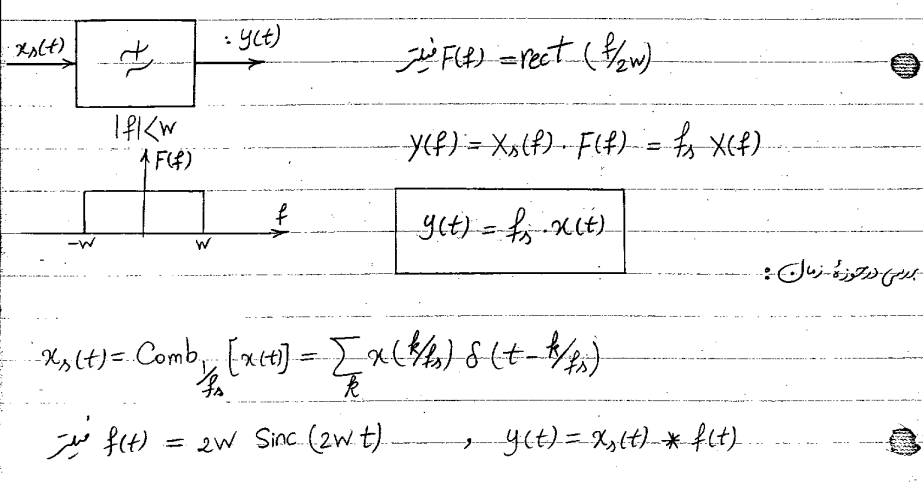 x_s(t) : y(t)
فیلتر F(f) = rect (f/2w)
|f|<w
Y(f) = X_s(f) . F(f) = f_s X(f)
F(f)
-w w f
y(t) = f_s . x(t)
بررسی در حوزهٔ زمان :
x_s(t) = Comb_{1/f_s} [x(t)] = ∑_k x(k/f_s) δ(t - k/f_s)
فیلتر f(t) = 2w Sinc (2w t) , y(t) = x_s(t) * f(t)